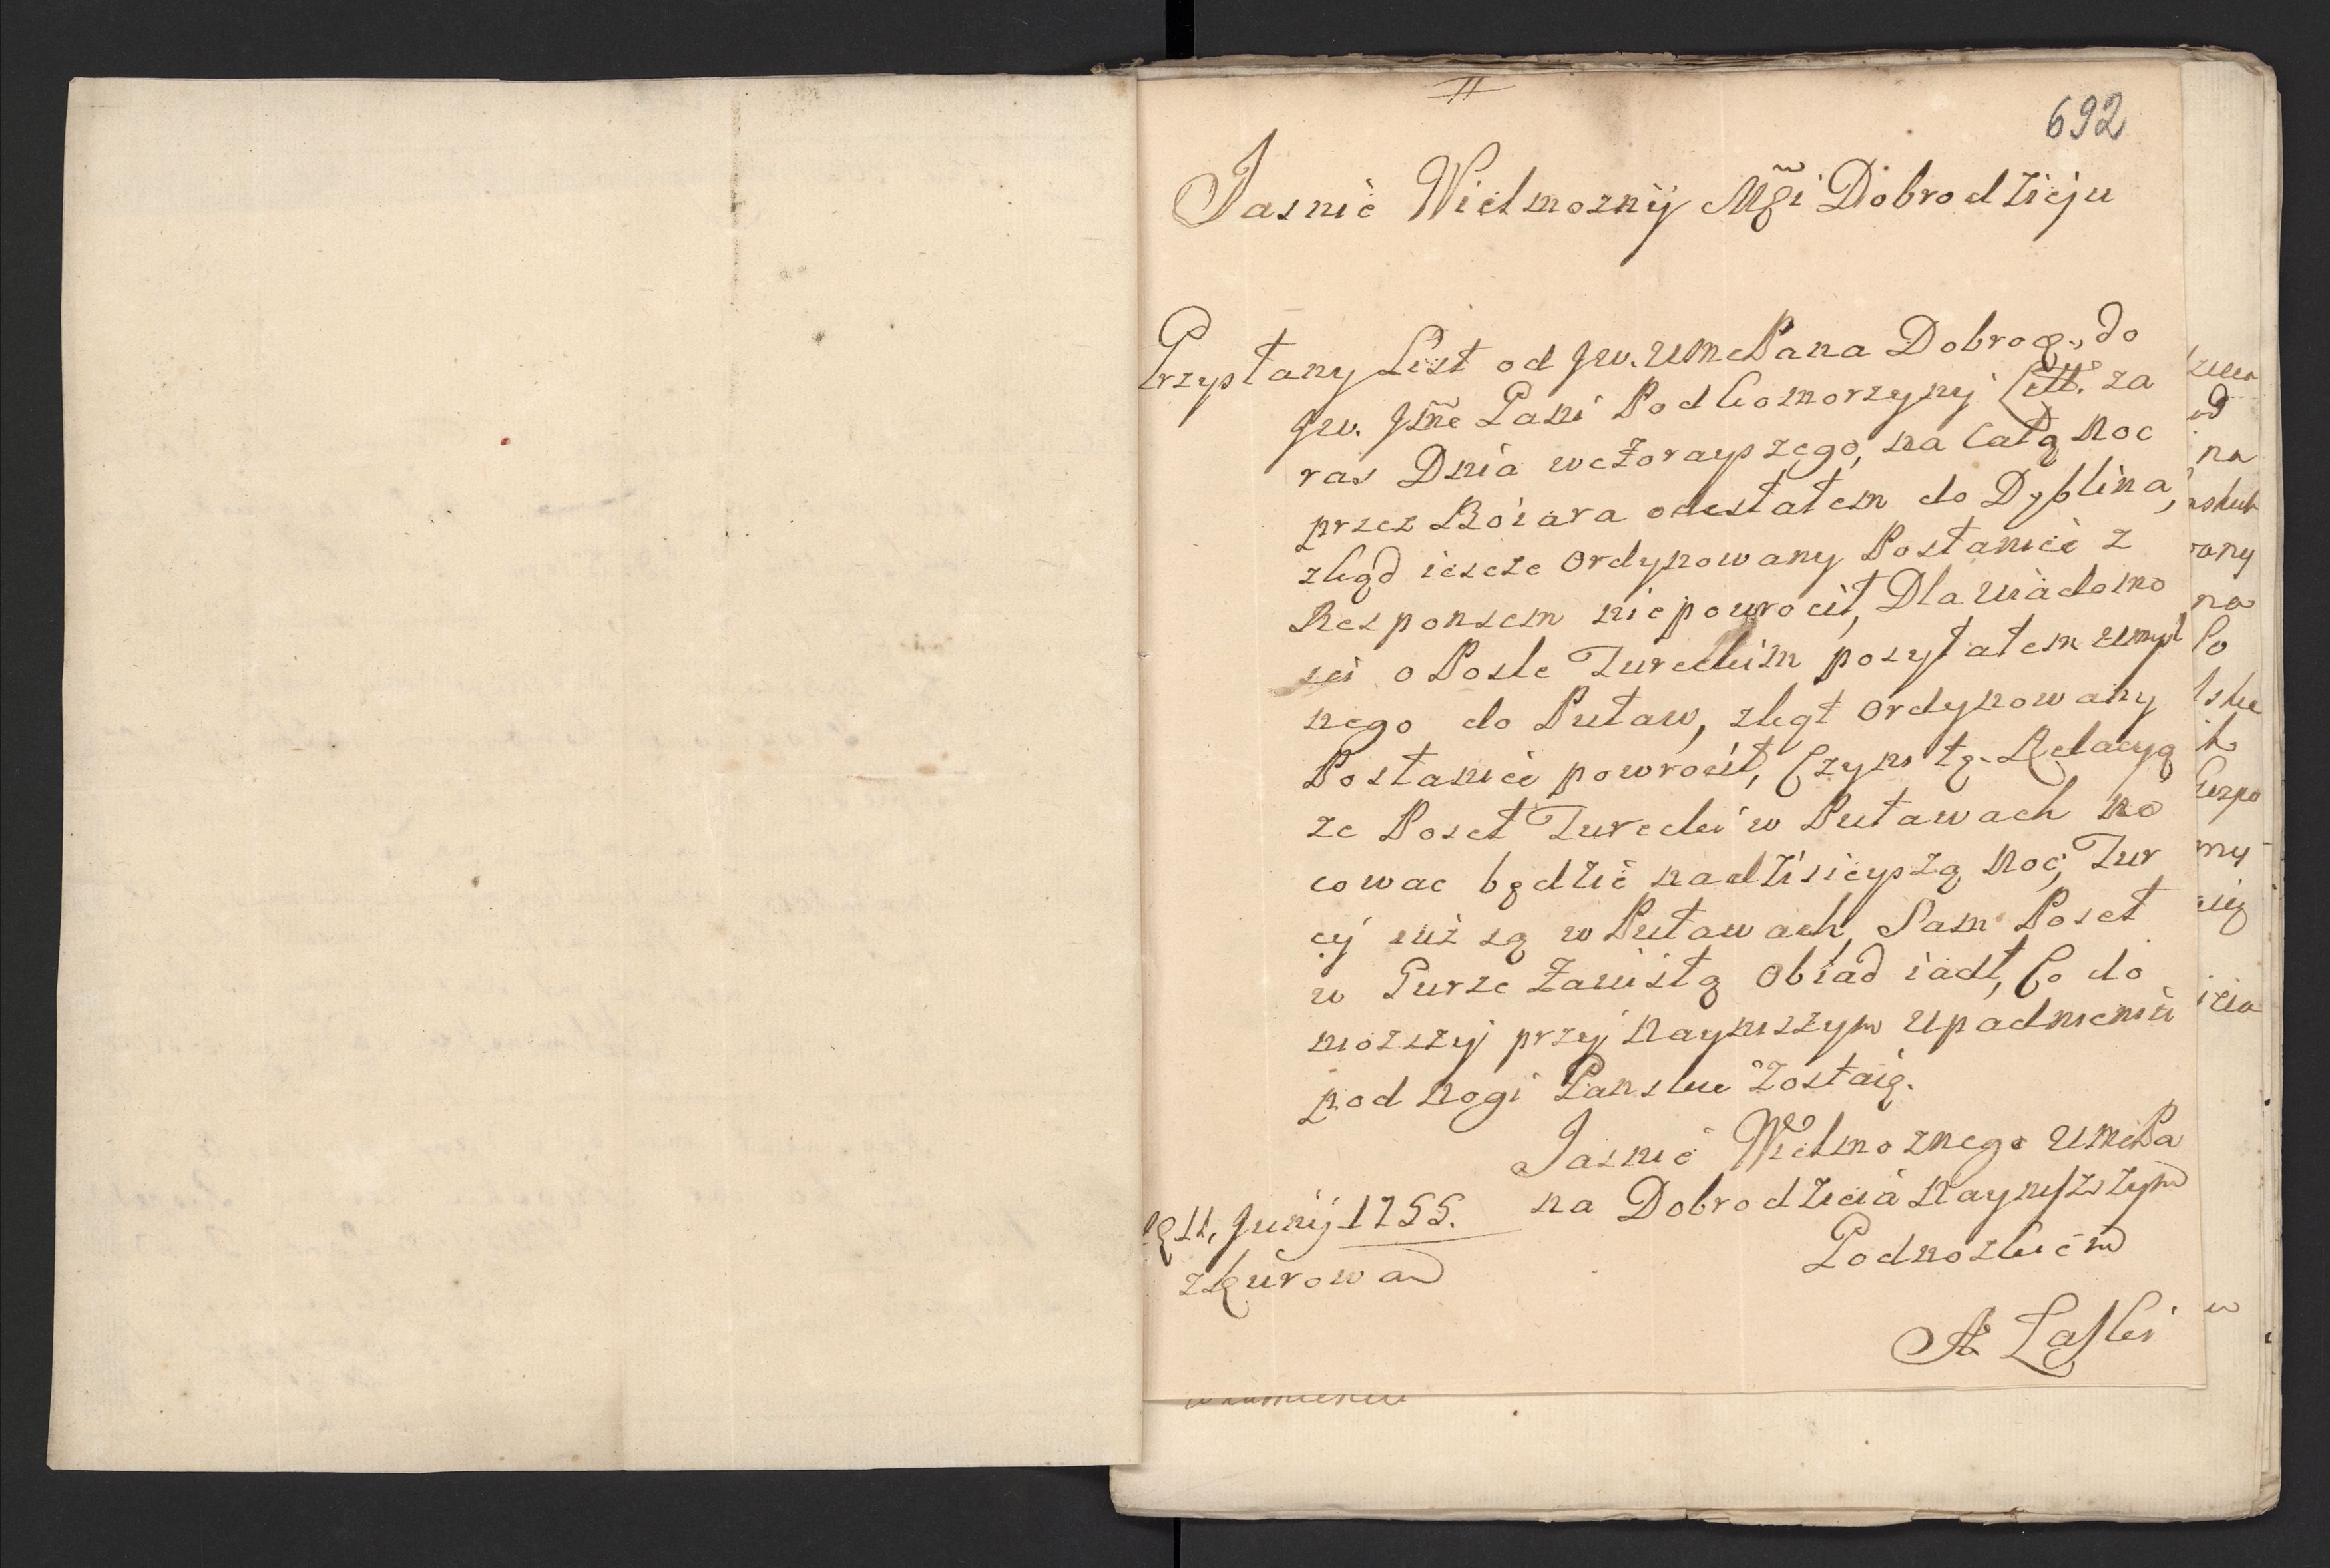 692
Jasnie Wielmoznÿ Mg̃i Dobrodzieju
Przysłany List od Jw. UMcPana Dobrog., do
Jw. Jm̃c Pani Podkomorzyny Litt. za
ras Dnia wczorayszego, na całą noc
przez Boiara odesłałem do Dęblina,
zkąd iescze ordynowany Posłaniec z
Responsem niepowrocił, Dla wiadomo
sci o Posle Tureckim posyłałem umysl
nego do Puław, zkąt ordynowany
Posłaniec powrocił, Czyni tę Relacyą
ze Poseł Turecki w Puławach no
cowac będzie nadzisieyszą noc, Tur
cÿ iuż są w Puławach Sam Poseł
w Gurze zawisłą obiad iadł, Co do
niozszÿ przÿ nayniszym upadnieniu
pod nogi Panskie Zostaię.
Jasnie Wielmoznego UMcPa
na Dobrodzieia naynyszszym
Podnozkiem
11, Junÿ 1755.
zKurowa
A Laski